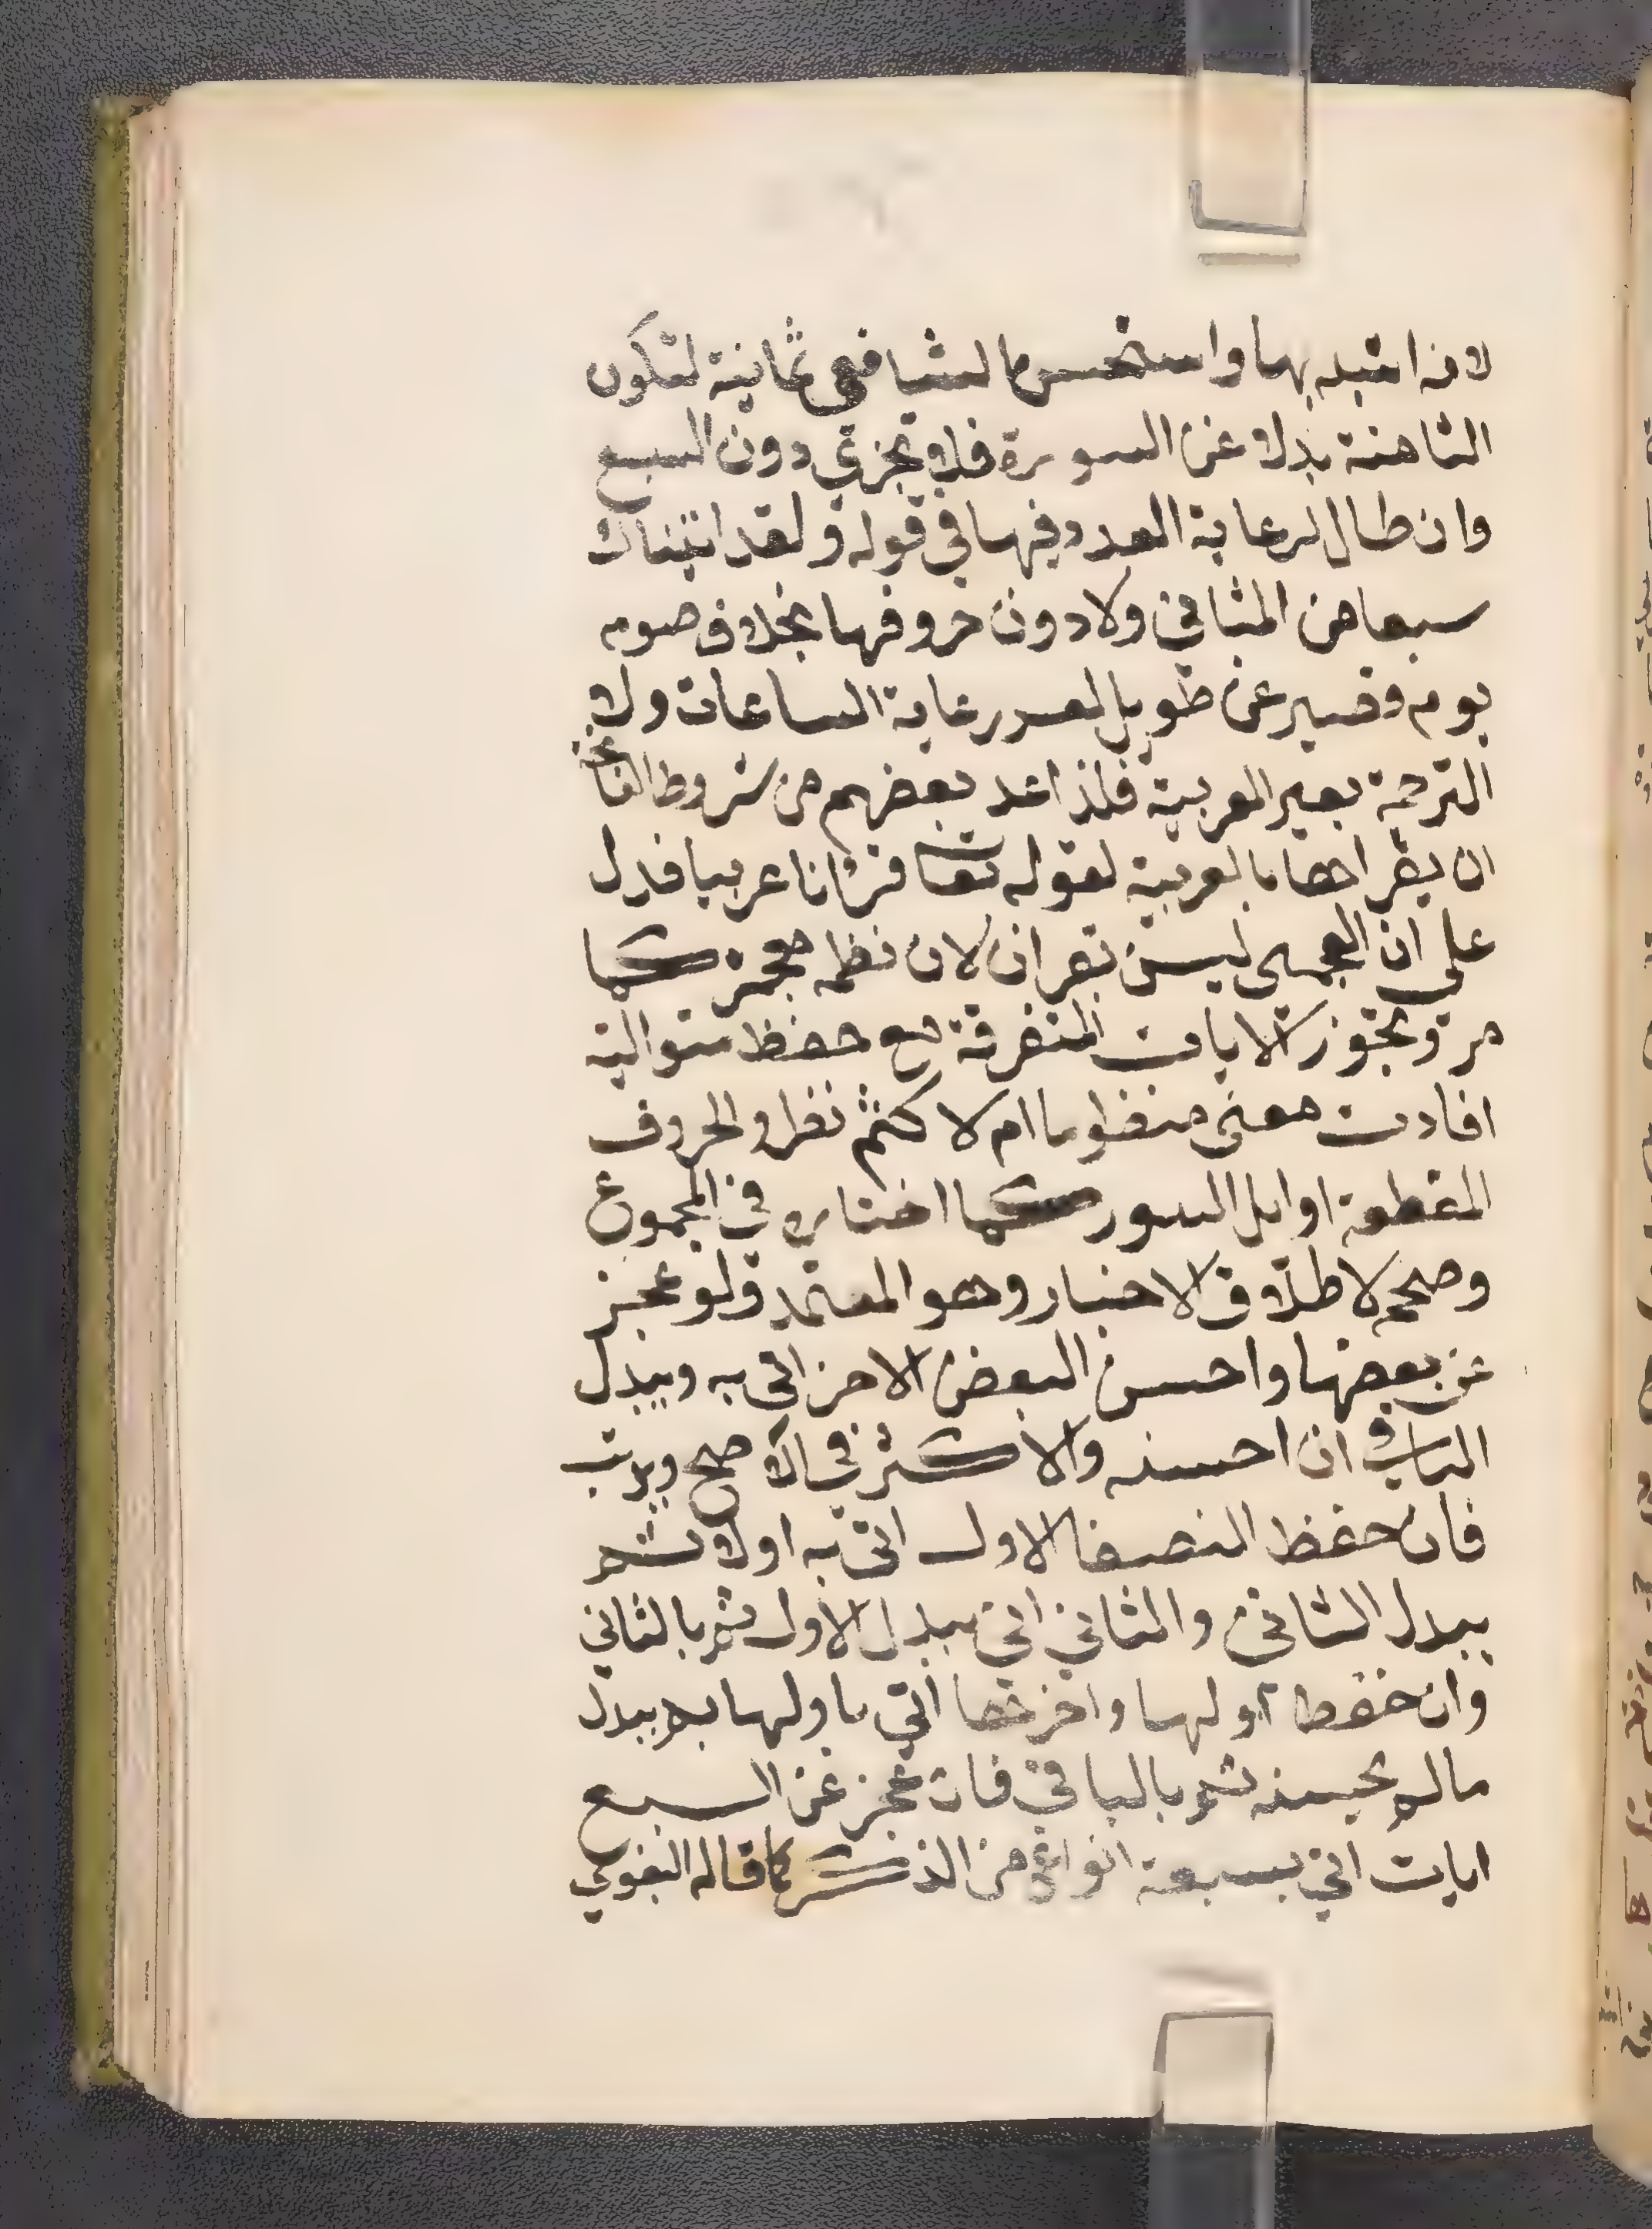 لانه اشبه بها واستحسن الشافعي ثمانية لتكون
الثامنة بدلا عن السورة فلا تجزي دون السبع
وان طال لرعاية العدد فيها في قوله ولقد اتيناك
سبعا من المثاني ولا دون حروفها بخلاف صوم
يوم قصير عن طويل لعسر رعاية الساعات ولا
الترجمة بغير العربية فلذا عد بعضهم من شروط الفاتحة
ان يقراها بالعربية لقوله تعا قرانا عربيا فدل
علي ان العجمي ليس بقران لان نظمه معجز كما
مر وتجوز الايات المتفرقة مع حفظ متوالية
افادت معنى منظوما ام لا كثم نظر والحروف
المقطعة اوايل السور كما اختاره في المجموع
وصححه لاطلاق الاخبار وهو المعتمد ولو عجز
عن بعضها واحسن البعض الاخر اتى به ويبدل
الباقي ان احسنه والا كرر في الاصح ويرتب
فان حفظ النصف الاول اتى به اولا ثم
ببدل الثاني والثاني اتي ببدل الاول ثم بالثاني
وان حفظ اولها واخرها اتي باولها ثم ببدل
مالم يحسنه ثم بالباقي فان عجز عن السبع
ايات اتي بسبعة انواع من الذكر كما قاله البغوي